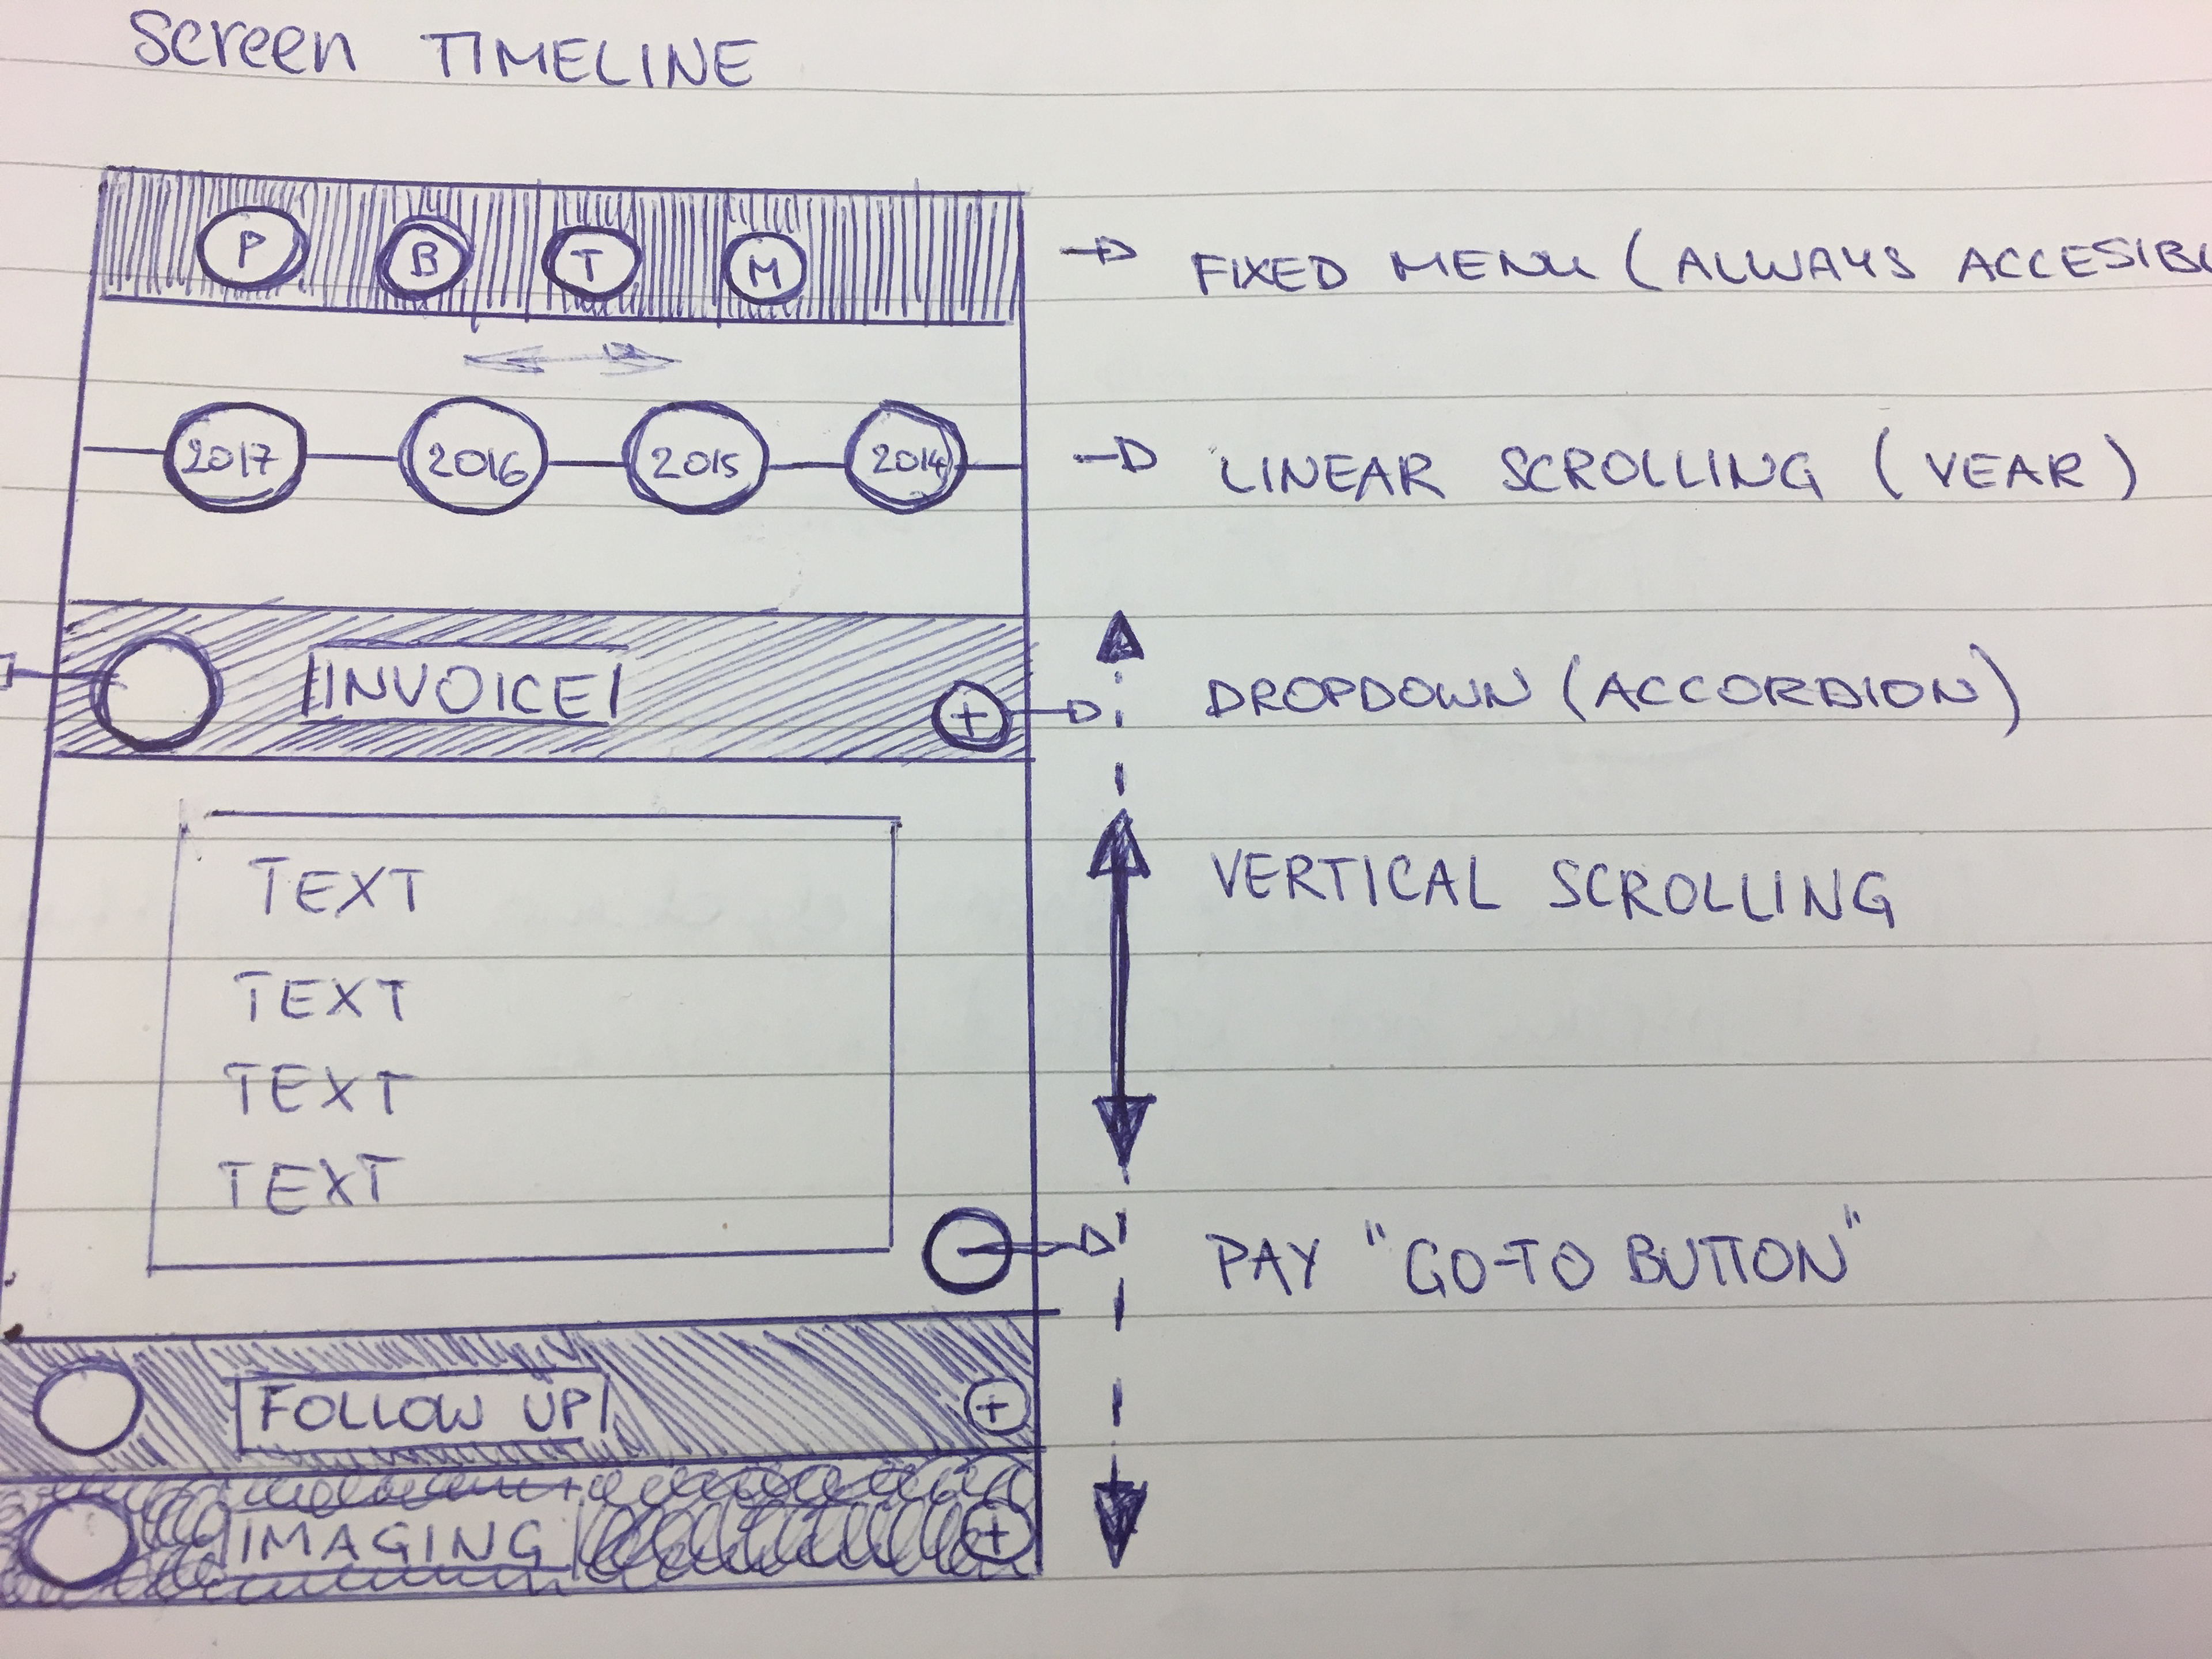 Screen TIMELINE
P B T M
FIXED MENU (ALWAYS ACCESIBL
2017 2016 2015 2014
LINEAR SCROLLING (YEAR)
INVOICE +
DROPDOWN (ACCORDION)
VERTICAL SCROLLING
TEXT
TEXT
TEXT
TEXT
PAY "GO-TO BUTTON"
FOLLOW UP +
IMAGING +